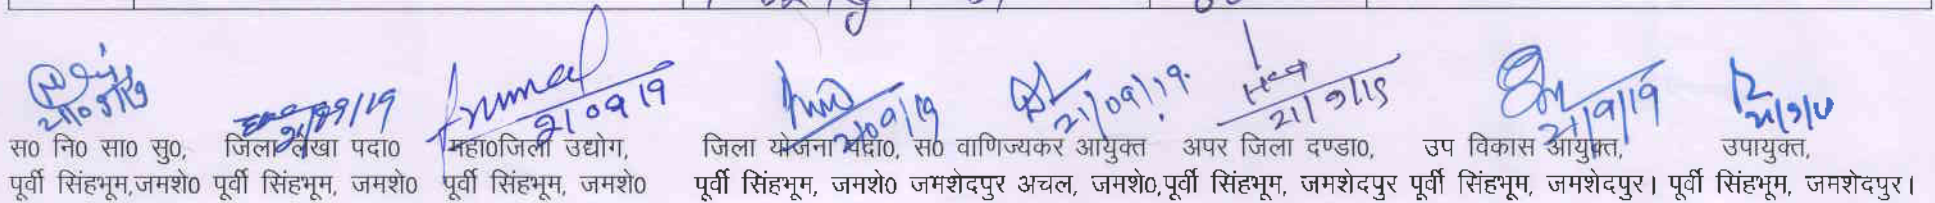 21/09/19 21/09/19 21/09/19 21/09/19 21/09/19. 21/9/19 21/9/19 21/9/19
स0 नि0 सा0 सु0, जिला लेखा पदा0 महा0जिला उद्योग, जिला योजना पदा0, स0 वाणिज्यकर आयुक्त अपर जिला दण्डा0, उप विकास आयुक्त, उपायुक्त,
पूर्वी सिंहभूम,जमशे0 पूर्वी सिंहभूम, जमशे0 पूर्वी सिंहभूम, जमशे0 पूर्वी सिंहभूम, जमशे0 जमशेदपुर अचल, जमशे0,पूर्वी सिंहभूम, जमशेदपुर पूर्वी सिंहभूम, जमशेदपुर। पूर्वी सिंहभूम, जमशेदपुर।